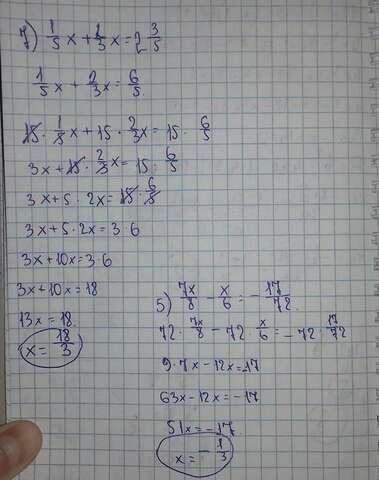 7) 1/5 x + 2/3 x = 2 3/5
1/5 x + 2/3 x = 6/5
15 · 1/5 x + 15 · 2/3 x = 15 · 6/5
3x + 15 · 2/3 x = 15 · 6/5
3x + 5 · 2x = 15 · 6/5
3x + 5 · 2x = 3 · 6
3x + 10x = 3 · 6
3x + 10x = 18
13x = 18
x = 18/3
5) 7x/8 - x/6 = - 17/72
72 · 7x/8 - 72 · x/6 = - 72 · 17/72
9 · 7x - 12x = -17
63x - 12x = -17
51x = -17
x = - 1/3